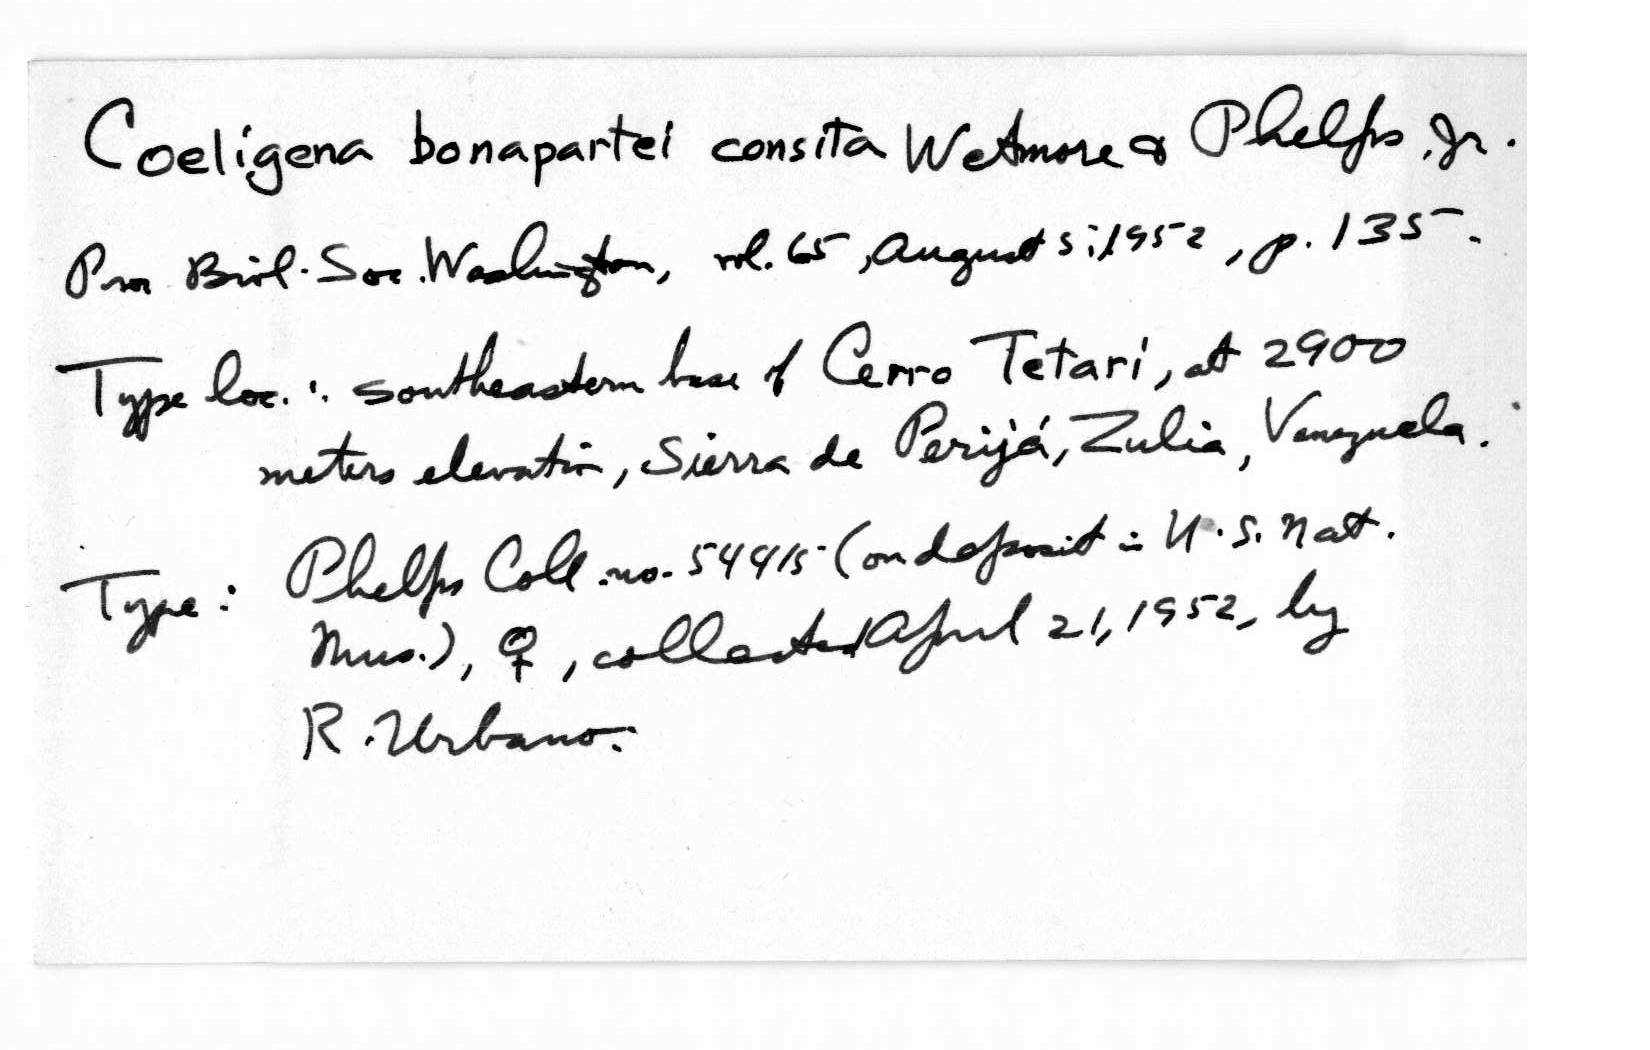 Coeligena bonapartei consita Wetmore & Phelps, Jr.
Proc Biol. Soc. Washington, vol. 65, August 5, 1952, p. 135.
Type loc.: southeastern base of Cerro Tetari, at 2900
meters elevation, Sierra de Perijá, Zulia, Venezuela.
Type: Phelps Coll. no. 54415 (on deposit in U.S. Nat.
Mus.), ♀, collected April 21, 1952, by
R. Urbano.